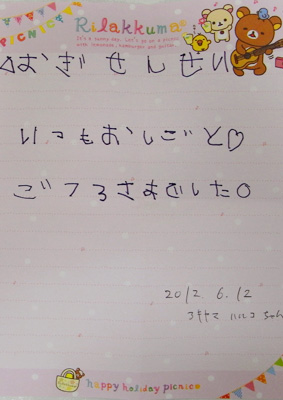 PICNIC
Rilakkuma
It's a sunny day. Let's go on a picnic
with lemonade, hamburger and guitar.
おぎせんせい
いつもおしごと♡
ごフろさまでした○
2012. 6. 12
ハルコ ちゃん
happy holiday picnic